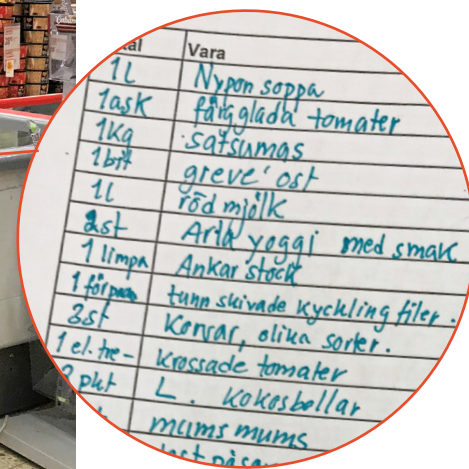 Vara
1L Nypon soppa
1ask färgglada tomater
1kg satsumas
1bit greve' ost
1L röd mjölk
2st Arla yoggi med smak
1 limpa Ankarstock
tunn skivade kyckling filer.
3st Korvar, olika sorter.
1 el. tre- krossade tomater
pkt L. kokosbollar
mums mums